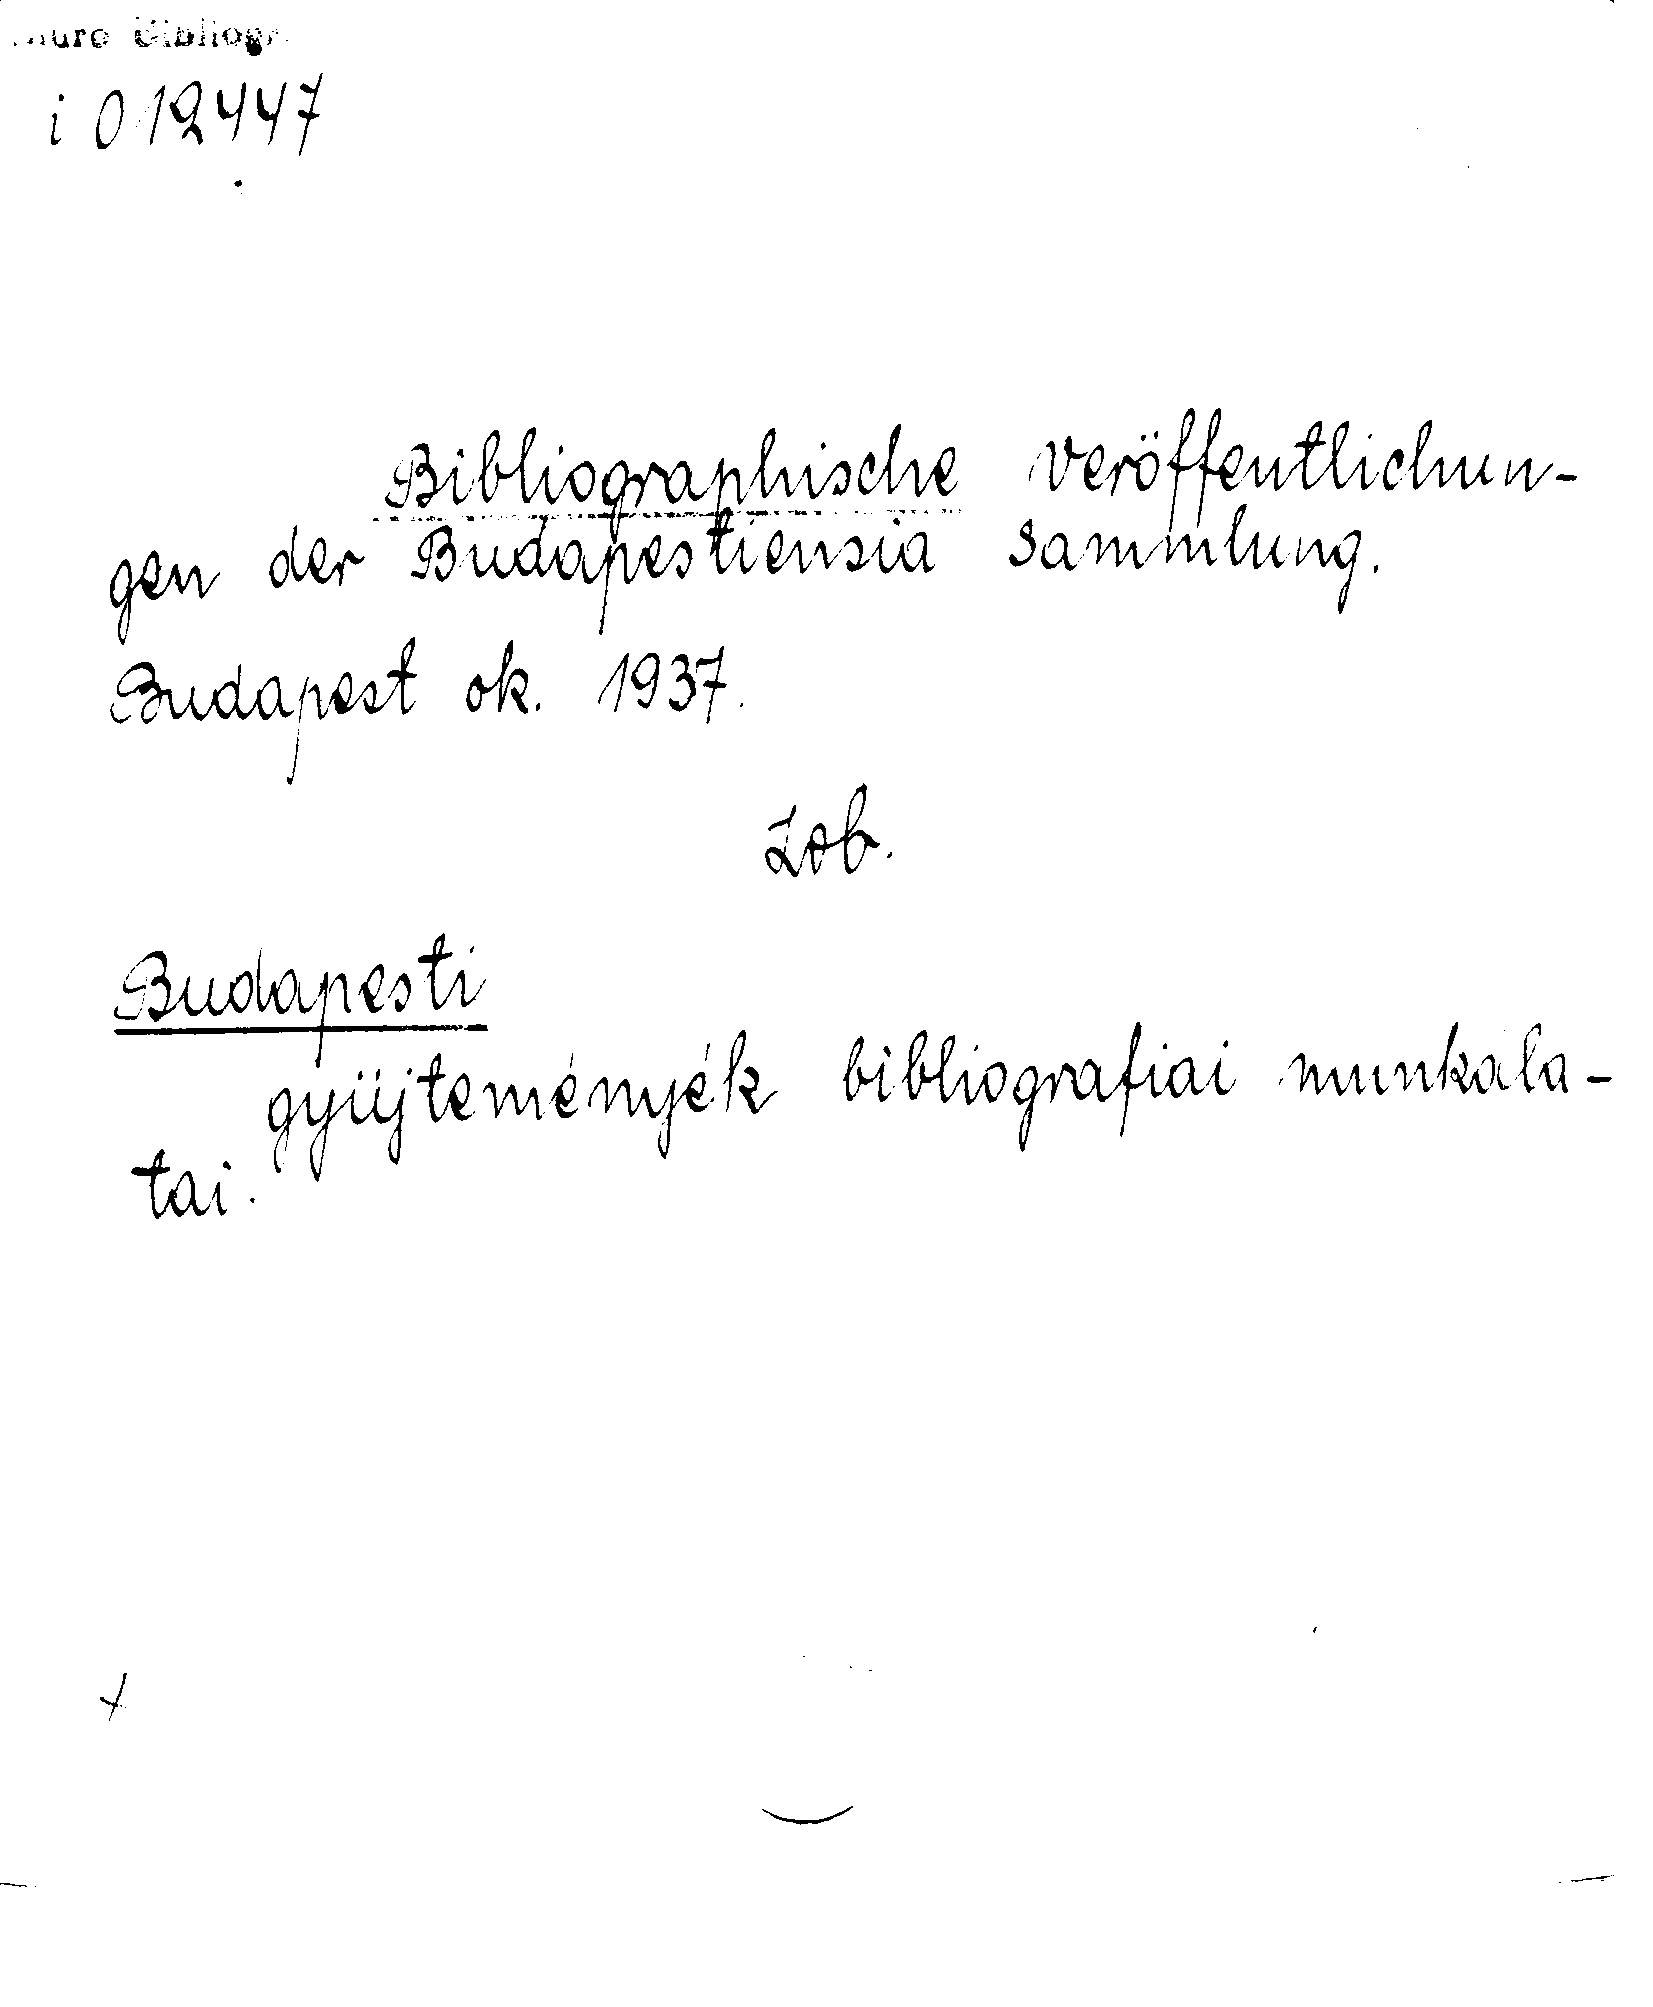 i 012447
Bibliographische Veröffentlichun-
gen der Budapestiensia Sammlung.
Budapest ok. 1937.
Zob.
Budapesti
gyüjtemények bibliografiai munkála-
tai.